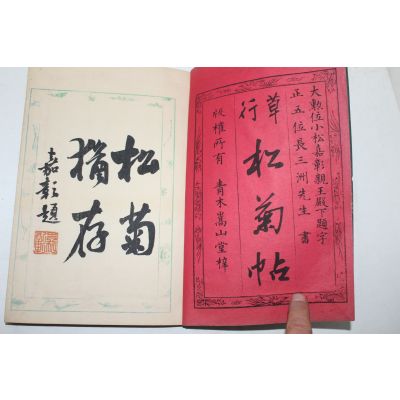 大勲位小松嘉彰親王殿下題字
正五位長三洲先生書
草行
松菊帖
版権所有 青木嵩山堂梓
松菊
猶存
嘉彰題